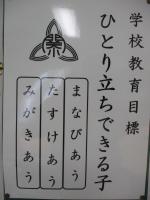 学校教育目標
ひとり立ちできる子
まなびあう
たすけあう
みがきあう